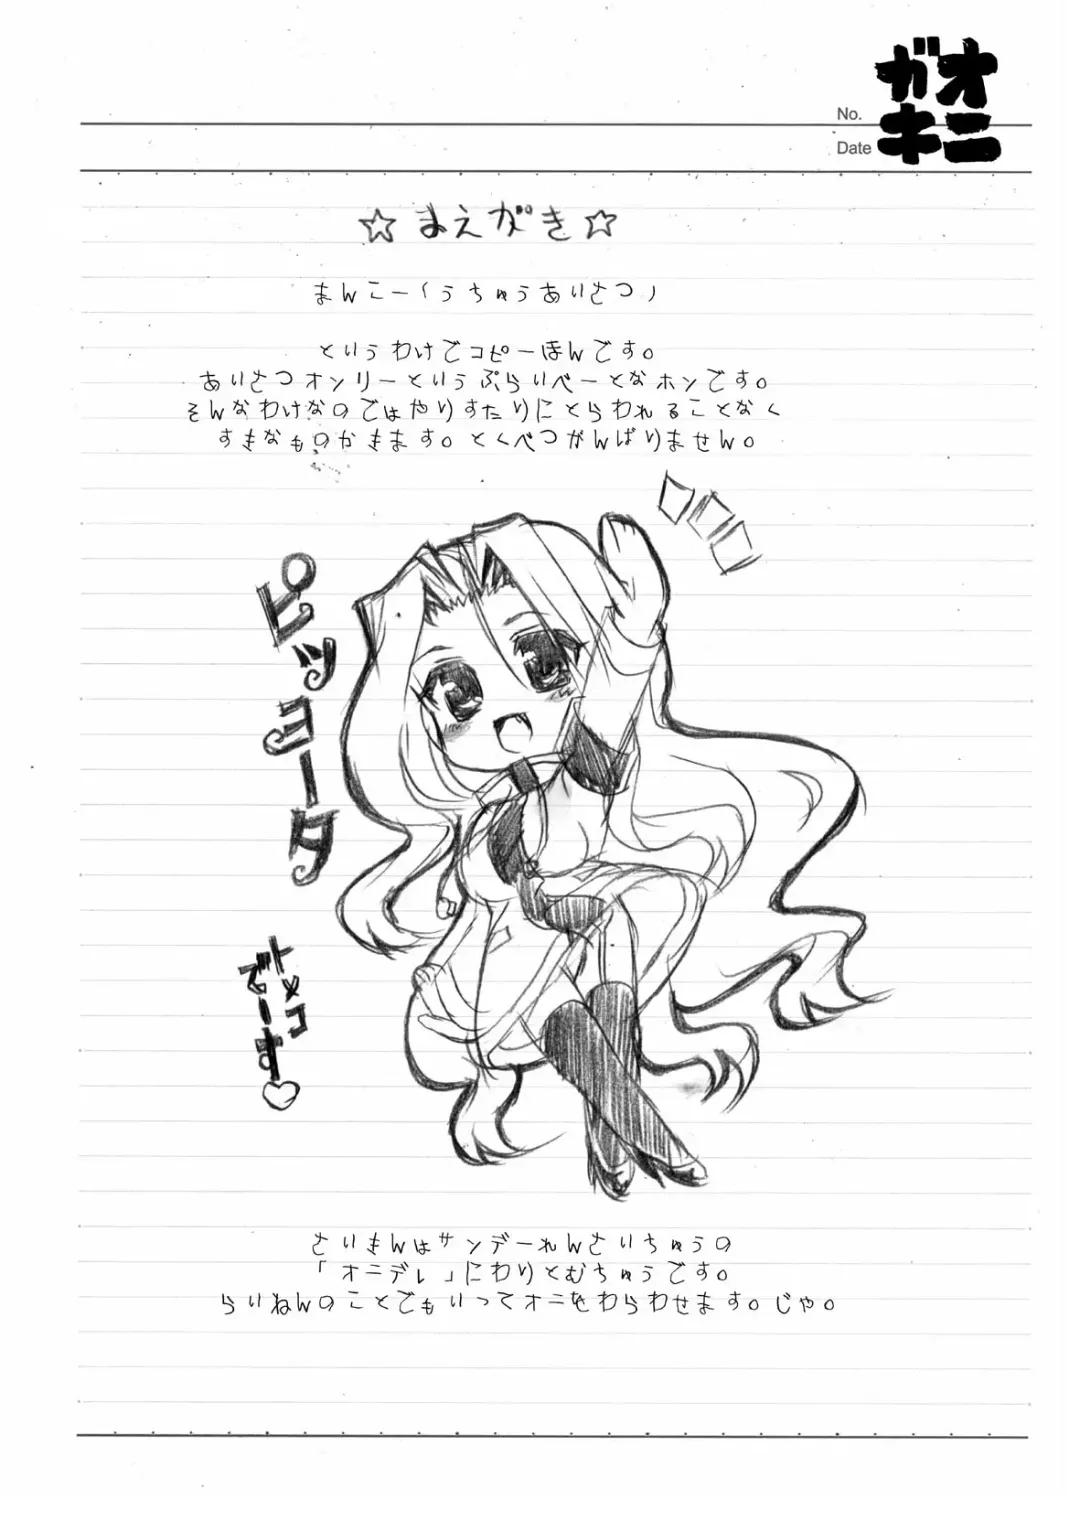 No.
Date
オニ
ガキ
☆まえがき☆
まんこー(うちゅうあいさつ)
というわけでコピーほんです。
あいさつオンリーというぷらいべーとなホンです。
そんなわけなのではやりすたりにとらわれることなく
すきなものかきます。とくべつがんばりません。
ピッコータ
トメコ
でーす♡
さいきんはサンデーれんさいちゅうの
「オニデレ」にわりとむちゅうです。
らいねんのことでもいってオニをわらわせます。じゃ。